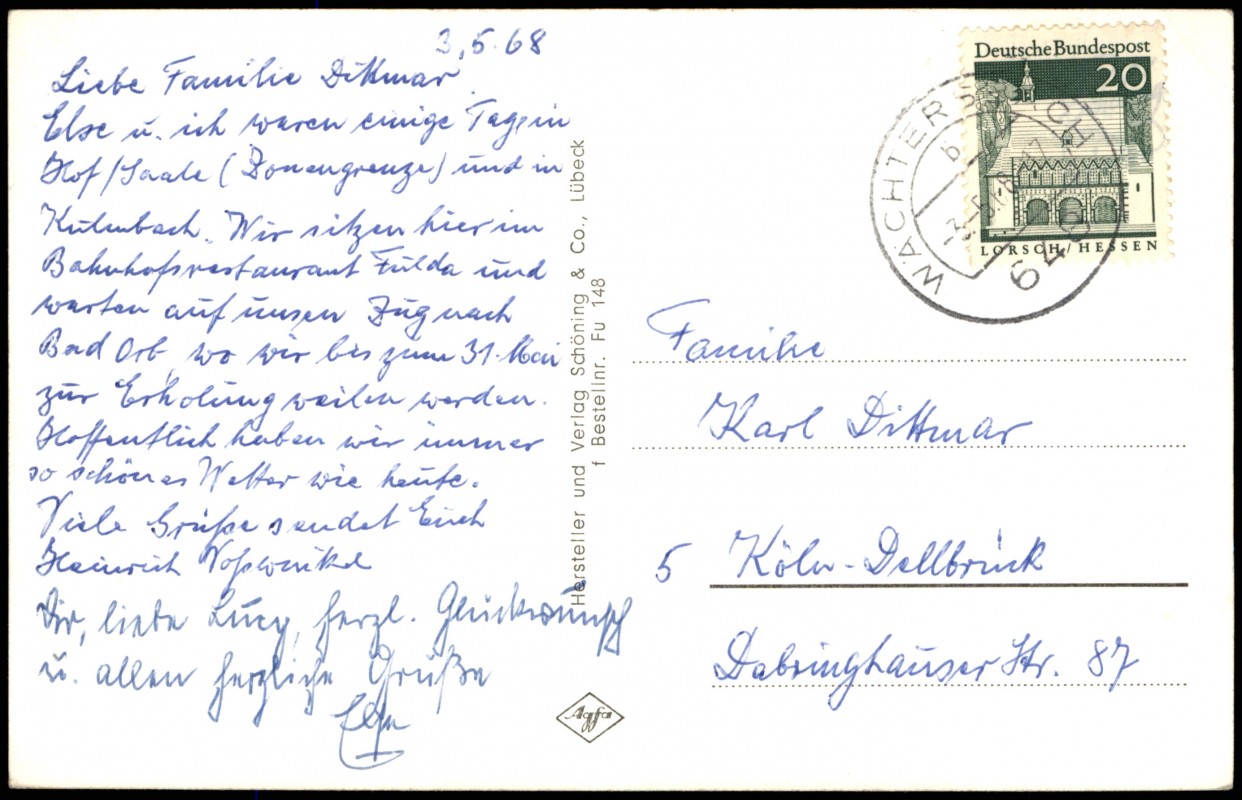 3.5.68
Liebe Familie Dittmar
Else u. ich waren einige Tage in
Hof/Saale (Zonengrenze) und in
Kulmbach. Wir sitzen hier im
Bahnhofsrestaurant Fulda und
warten auf unsen Zug nach
Bad Orb, wo wir bis zum 31. Mai
zur Erholung weilen werden.
Hoffentlich haben wir immer
so schönes Wetter wie heute.
Viele Grüße sendet Euch
Heinrich Voßwinkel
Dir, liebe Lucy, herzl. Glückwunsch
u. allen herzliche Grüße
Else
Hersteller und Verlag Schöning & Co., Lübeck
f Bestellnr. Fu 148
Agfa
Deutsche Bundespost
20
LORSCH/HESSEN
WÄCHTERSBACH
b
6480
Familie
Karl Dittmar
5 Köln-Dellbrück
Dabringhauser Str. 87